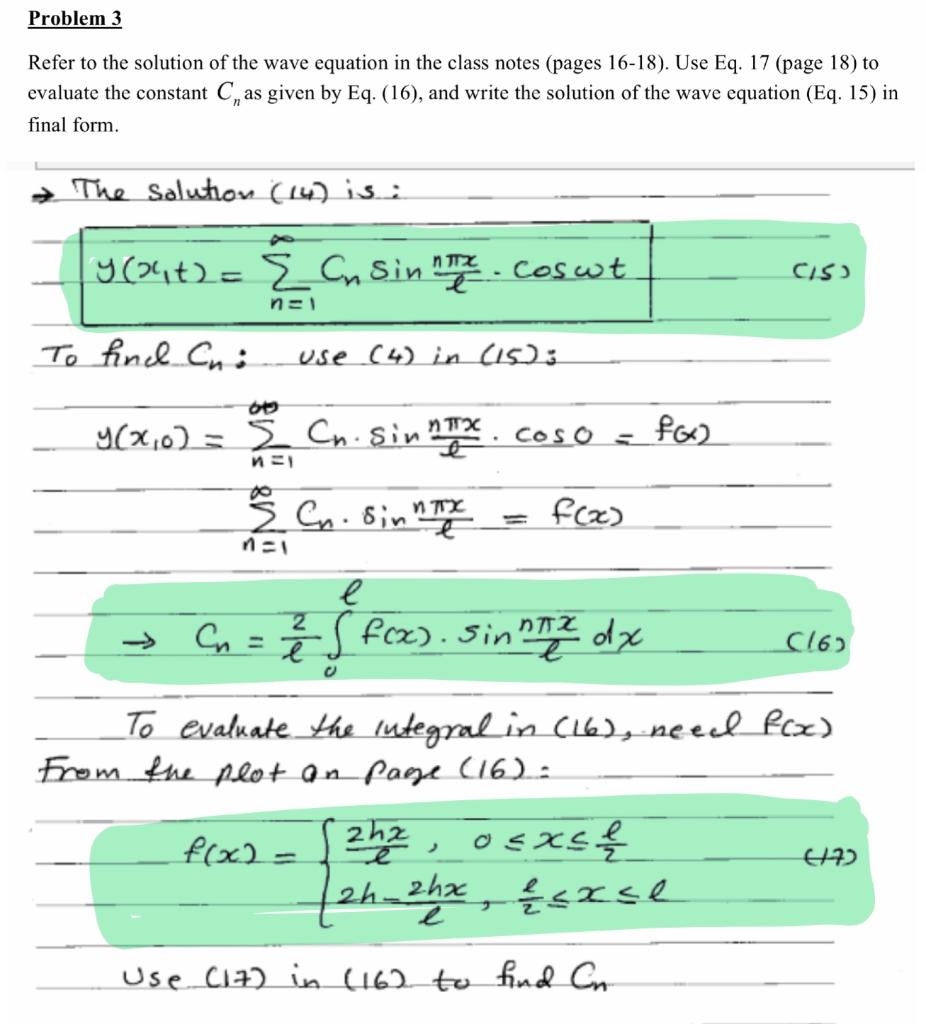 Problem 3
Refer to the solution of the wave equation in the class notes (pages 16-18). Use Eq. 17 (page 18) to
evaluate the constant Cₙ as given by Eq. (16), and write the solution of the wave equation (Eq. 15) in
final form.
→ The solution (14) is :
y(x,t) = ∞∑n=1 Cn sin nπx/ℓ . cos ωt (15)
To find Cn : use (4) in (15) :
y(x,0) = ∞∑n=1 Cn . sin nπx/ℓ . cos 0 = f(x)
∞∑n=1 Cn . sin nπx/ℓ = f(x)
→ Cn = 2/ℓ ∫₀ℓ f(x) . sin nπx/ℓ dx (16)
To evaluate the integral in (16), need f(x)
From the plot on page (16) :
f(x) = { 2hx/ℓ , 0 ≤ x ≤ ℓ/2 (17)
2h - 2hx/ℓ , ℓ/2 ≤ x ≤ ℓ
Use (17) in (16) to find Cn